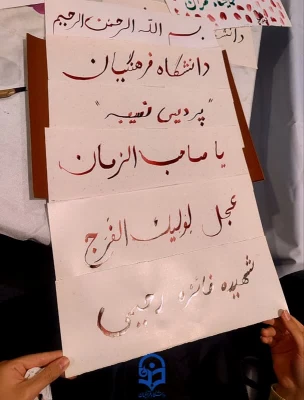 بسم الله الرحمن الرحیم
دانشگاه فرهنگیان
"پردیس نسیبه"
یا صاحب الزمان
عجل لولیك الفرج
شهیده فائزه رحیمی